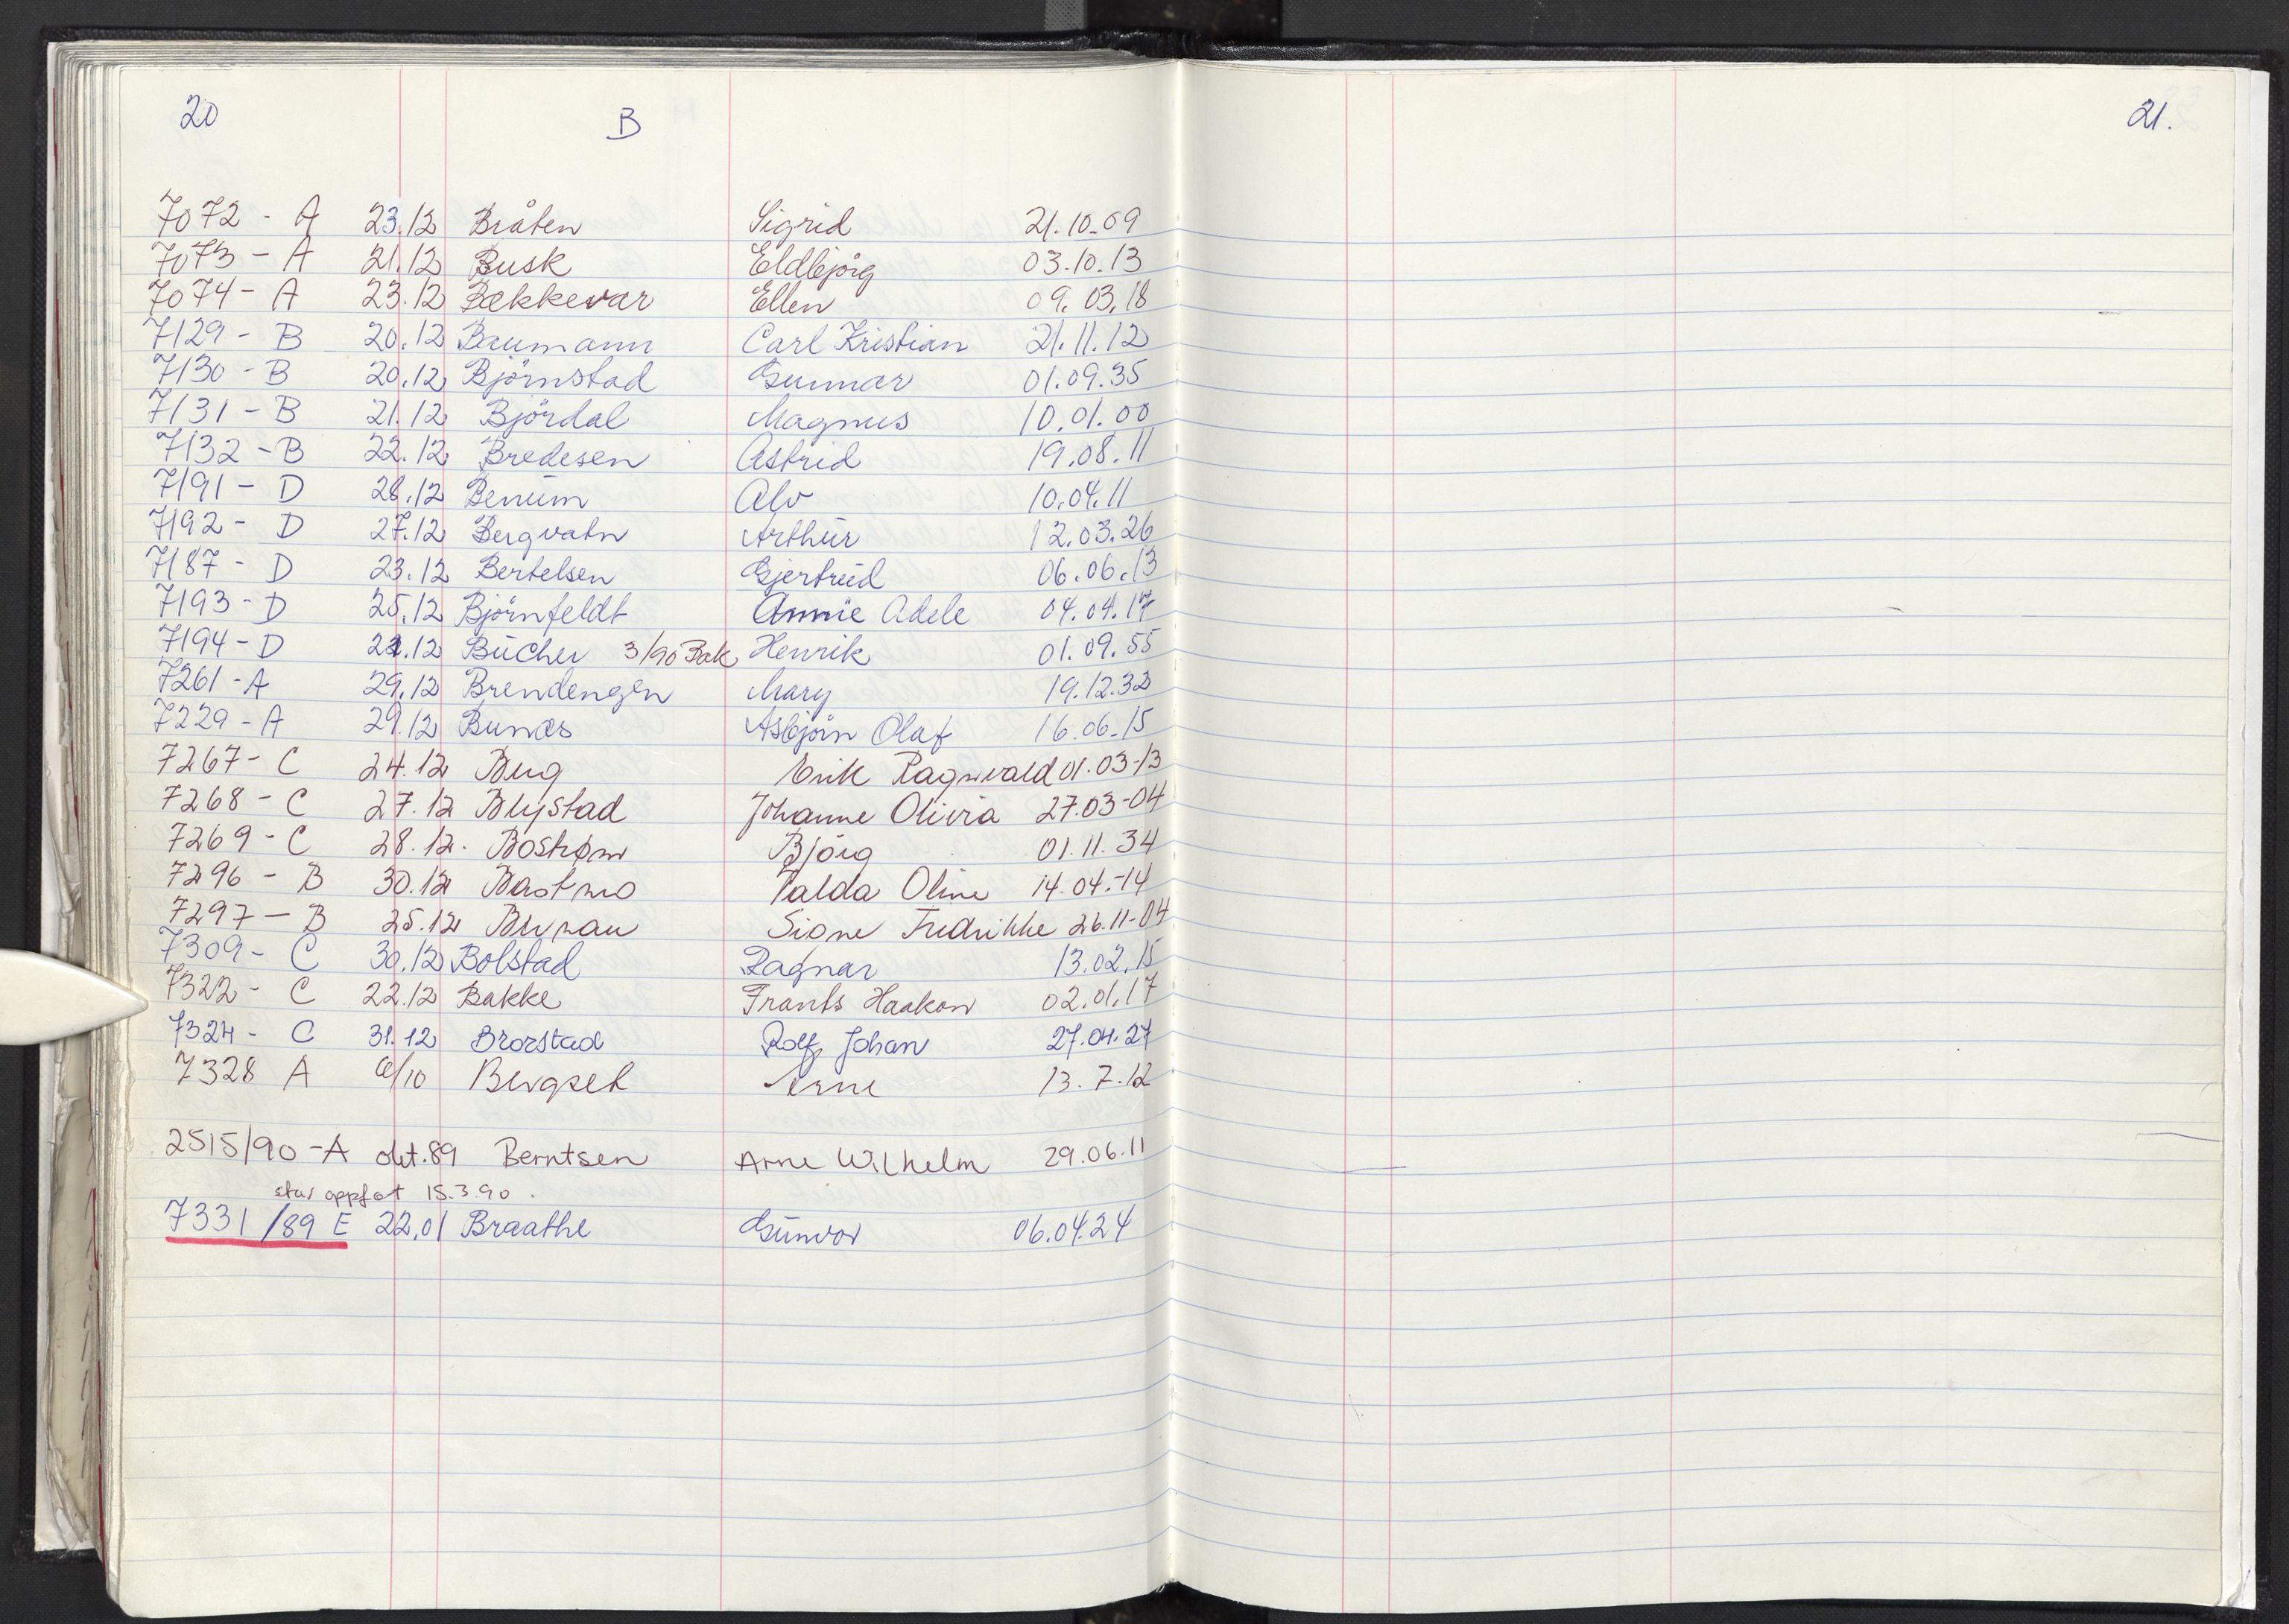 20
B
21.
7072 - A 23.12 Bråten Sigrid 21.10-09
7073 - A 21.12 Busk Eldbjörg 03.10.13
7074 - A 23.12 Bækkevar Ellen 09.03.18
7129 - B 20.12 Baumann Carl Kristian 21.11.12
7130 - B 20.12 Björnstad Gunnar 01.09.35
7131 - B 21.12 Björdal Magnus 10.01.00
7132 - B 22.12 Bredesen Astrid 19.08.11
7191 - D 28.12 Benum Alv 10.04.11
7192 - D 27.12 Bergvatn Arthur 12.03.26
7187 - D 23.12 Bertelsen Gjertrud 06.06.13
7193 - D 25.12 Björnfeldt Annie Adele 04.04.17
7194 - D .12 Bucher 3/90 Bak Henrik 01.09.55
7261 - A 29.12 Brendengen Mary 19.12.32
7229 - A 29.12 Bunæs Asbjörn Olaf 16.06.15
7267 - C 24.12 Berg Erik Ragnvald 01.03-13
7268 - C 27.12 Blystad Johanne Olivia 27.03-04
7269 - C 28.12. Bostrøm Björg 01.11.34
7296 - B 30.12 Oline 14.04.-14
7297 - B 25.12 Signe Fredrikke 26.11-04
7309 - C 30.12 Bolstad Ragnar 13.02.15
7322 - C 22.12 Bakke Frants Haakon 02.01.17
7324 - C 31.12 Brorstad Rolf Johan 27.04.27
7328 A /10 Bergset Arne 13.7.12
2515/90 - A okt.89 Berntsen Arne Wilhelm 29.06.11
står oppført 15.3.90.
7331/89 E 22.01 Braathe Gunvor 06.04.24